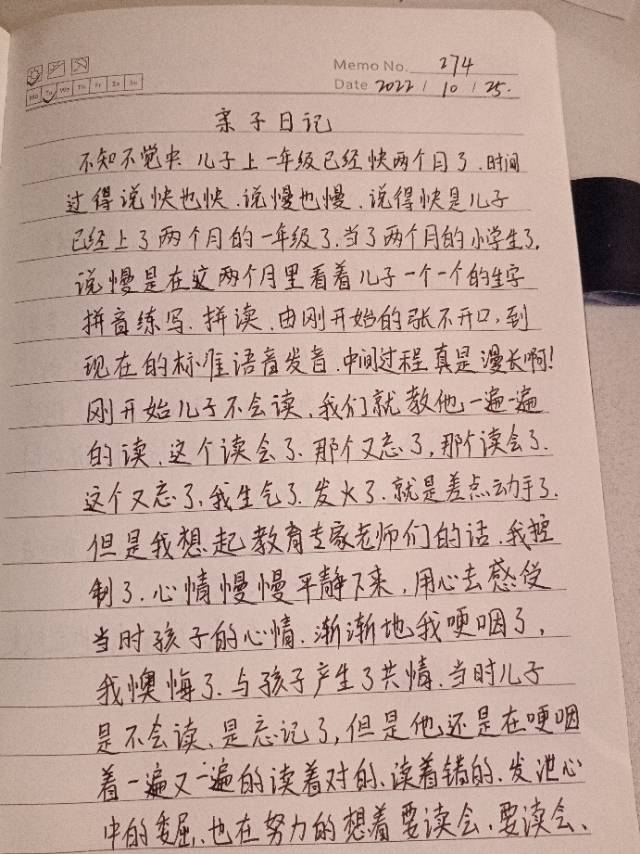 Memo No. 274
Mo Tu We Th Fr Sa Su
Date 2022 / 10 / 25.
亲子日记
不知不觉中、儿子上一年级已经快两个月了、时间
过得说快也快、说慢也慢、说得快是儿子
已经上了两个月的一年级了、当了两个月的小学生了、
说慢是在这两个月里看着儿子一个一个的生字
拼音练写、拼读、由刚开始的张不开口、到
现在的标准语音发音、中间过程真是漫长啊!
刚开始儿子不会读、我们就教他一遍一遍
的读、这个读会了、那个又忘了,那个读会了、
这个又忘了、我生气了、发火了、就是差点动手了、
但是我想起教育专家老师们的话、我控
制了、心情慢慢平静下来,用心去感受
当时孩子的心情、渐渐地我哽咽了,
我懊悔了、与孩子产生了共情、当时儿子
是不会读、是忘记了,但是他还是在哽咽
着一遍又一遍的读着对的、读着错的、发泄心
中的委屈、也在努力的想着要读会、要读会、